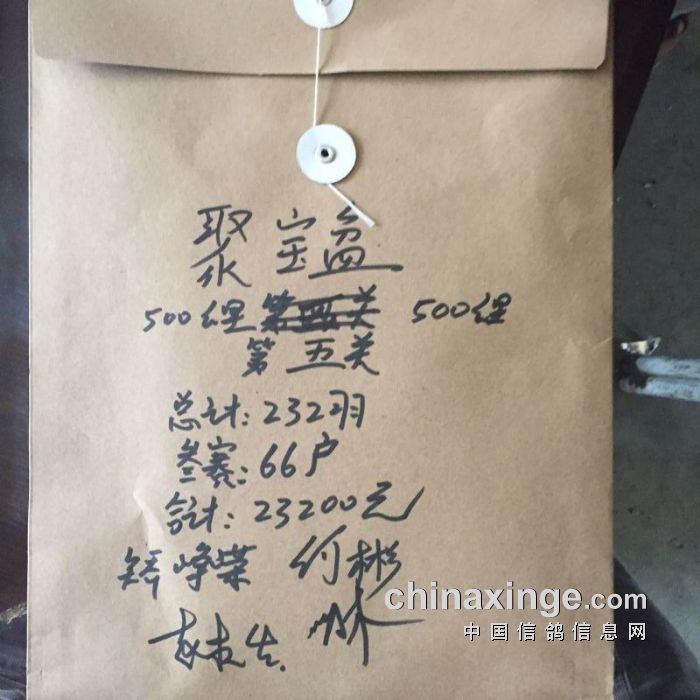 聚宝盆
500组 第四关 500组
第五关
总计:232羽
参赛:66户
合计:23200元
峥荣 何彬
chinaxinge.com
中国信鸽信息网